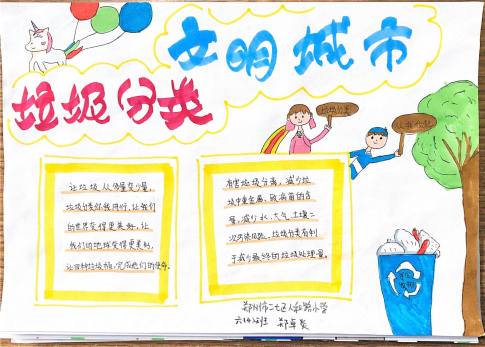 文明城市
垃圾分类
垃圾分类
从我做起
让垃圾从多量变少量,
垃圾分类你我同行,让我们
的世界变得更美好,让
我们的地球变得更美好,
让四种垃圾桶,完成他们的使命。
有害垃圾分离,减少垃
圾中重金属、致病菌的含
量,减少水、大气、土壤二
次污染风险,垃圾分类有利
于减少最终的垃圾处理量。
可回收物
郑州市二七区人和路小学
班 郑卓